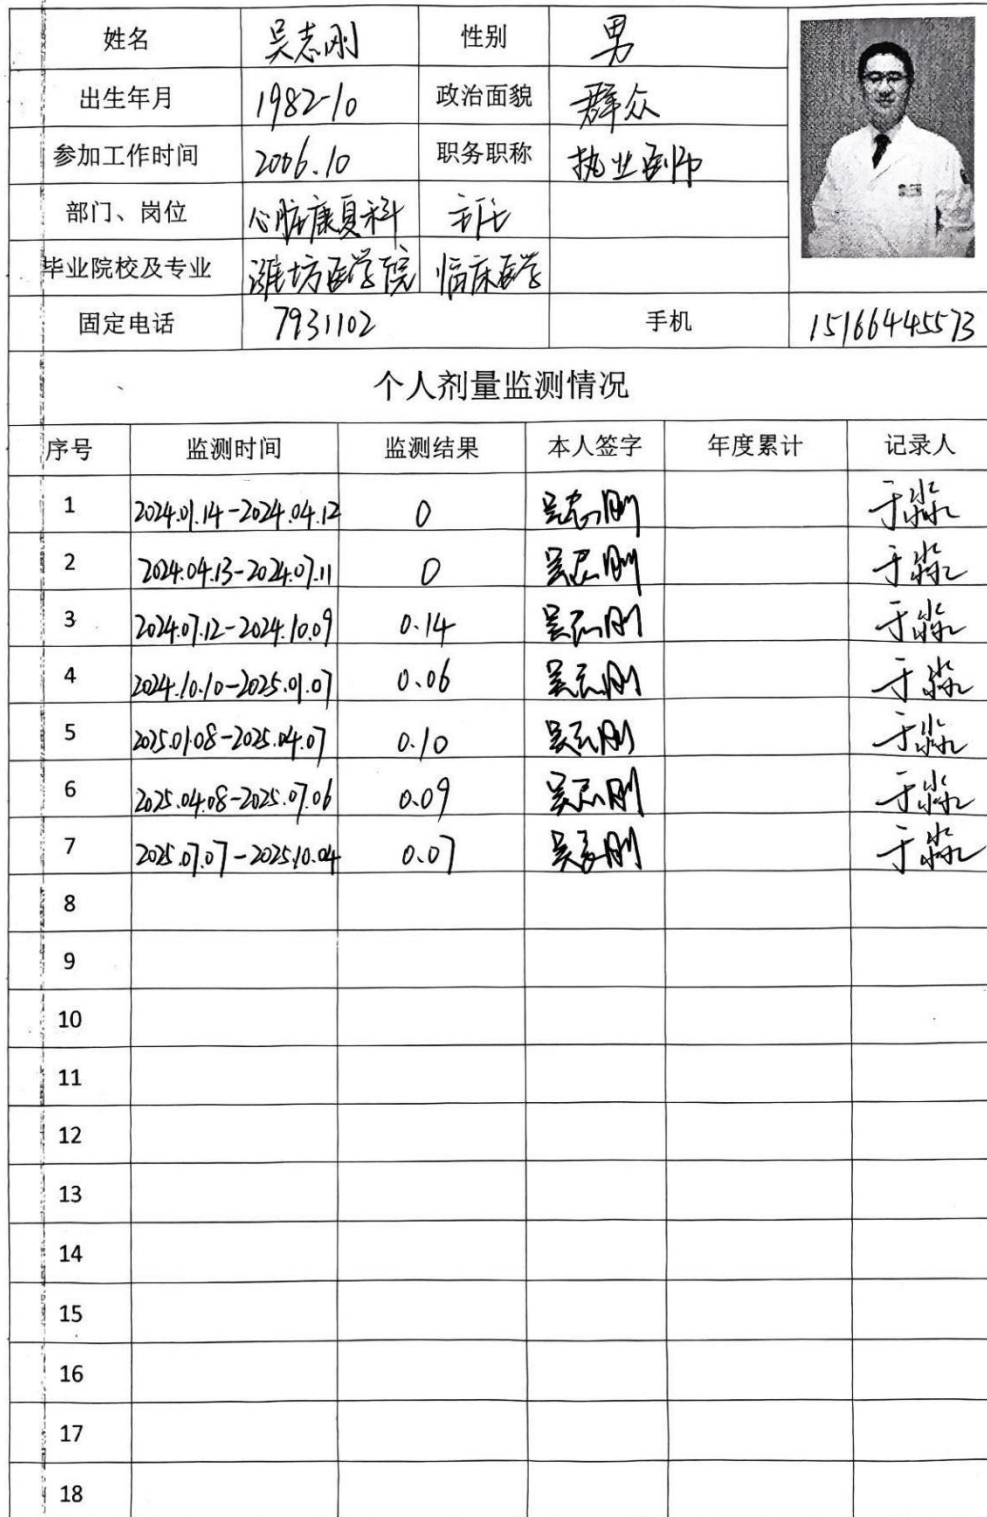 姓名 吴志刚 性别 男
出生年月 1982-10 政治面貌 群众
参加工作时间 2006.10 职务职称 执业医师
部门、岗位 心脏康复科 主任
毕业院校及专业 潍坊医学院 临床医学
固定电话 7931102 手机 15166445573
个人剂量监测情况
序号 监测时间 监测结果 本人签字 年度累计 记录人
1 2024.01.14-2024.04.12 0 吴志刚 于淼
2 2024.04.13-2024.07.11 0 吴志刚 于淼
3 2024.07.12-2024.10.09 0.14 吴志刚 于淼
4 2024.10.10-2025.01.07 0.06 吴志刚 于淼
5 2025.01.08-2025.04.07 0.10 吴志刚 于淼
6 2025.04.08-2025.07.06 0.09 吴志刚 于淼
7 2025.07.07-2025.10.04 0.07 吴志刚 于淼
8
9
10
11
12
13
14
15
16
17
18